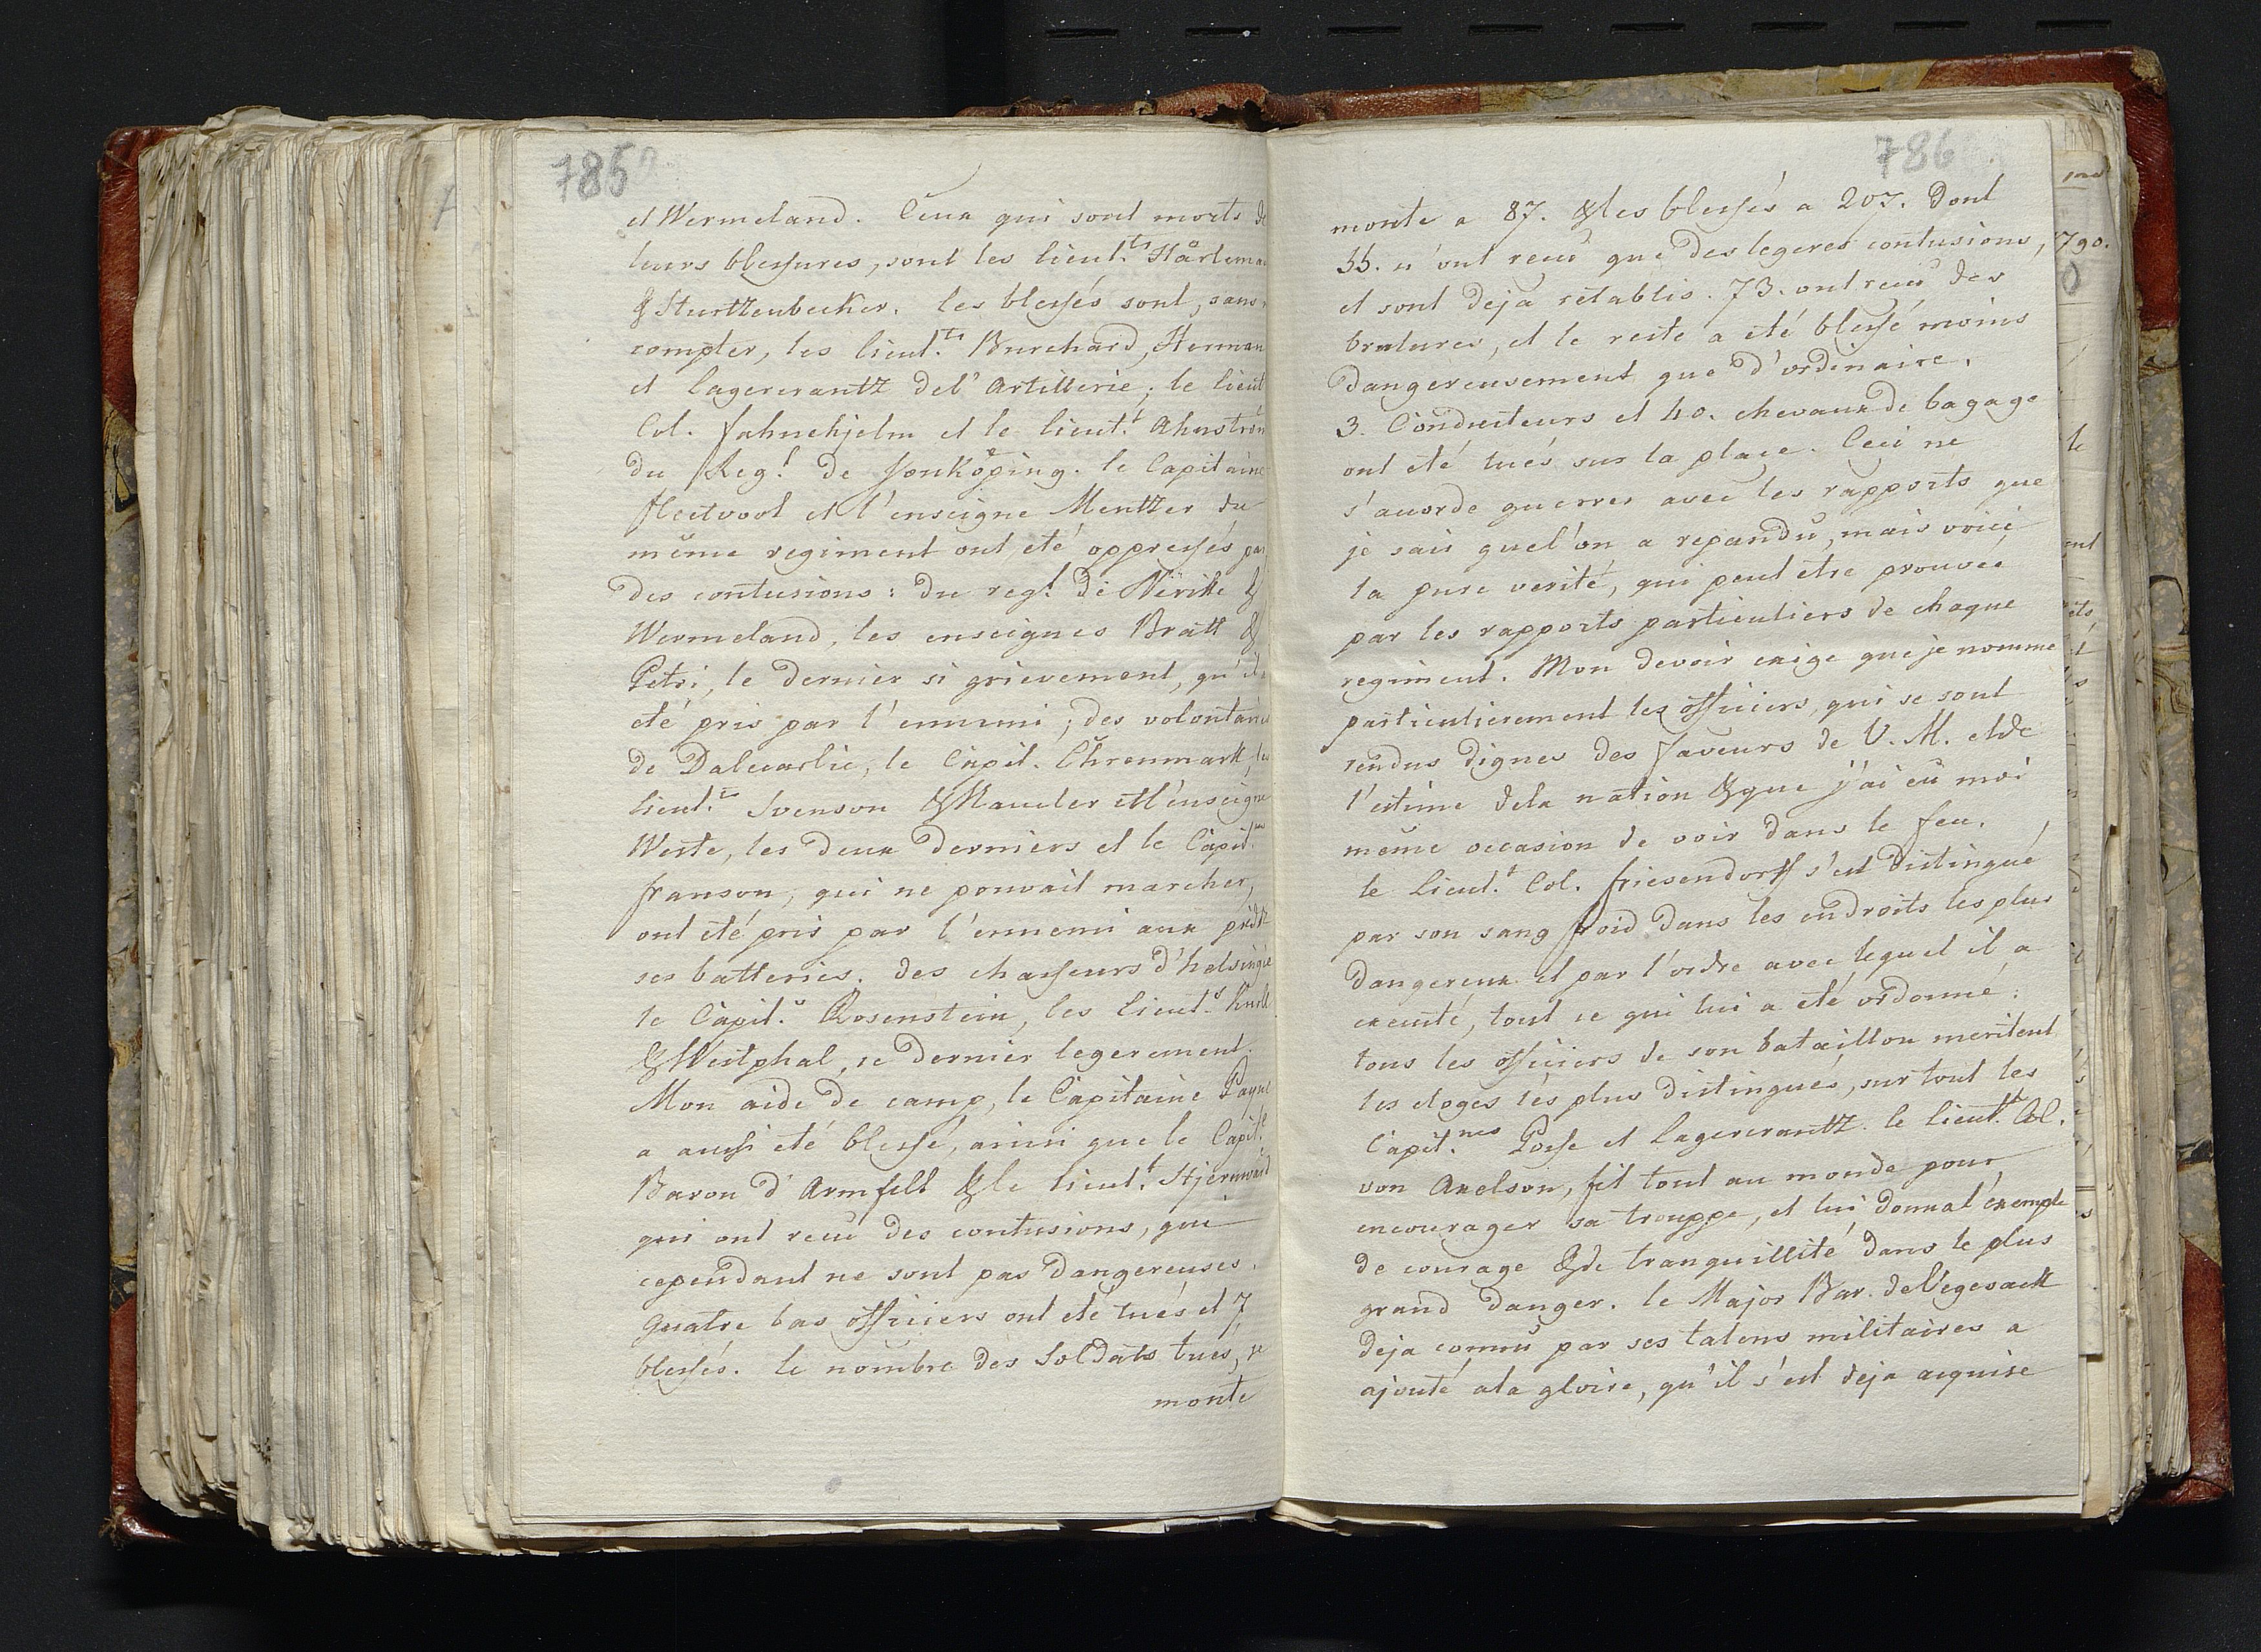 785
et Wermeland. Ceux qui sont morts de
leurs blessures, sont les lieut.ts Hårlema
& Sturtzenbecker. les blessés sont, sans
compter, les lieut.ts Burchard, Herman
et Lagercrantz del'Artillerie; le lieut
Col. fahnehjelm et le lieut.t Ahnström
du Reg.t de Jonköping. le Capitaine
fleetvood et l'enseigne Mentzer du
même regiment ont eté oppressés par
des contusions: du reg.t de Nërike &
Wermeland, les enseignes Bratt &
Petri, le dernier si grievement, qu'il
eté pris par l'ennemi; des volontaires
de Dalecarlie, le Capit. Ehrenmark, les
lieut.t Svenson & Maucler et l'enseigne
Weste, les deux derniers et le Capit.ne
franson, qui ne pouvait marcher,
ont eté pris par l'ennemi aux
ses batteries. des chasseurs d'helsingie
le Capit.e Rosenstein, les lieut.s
& Westphal, ce dernier legerement.
Mon aide de camp, le Capitaine Payne
a aussi eté blessé, ainsi que le Capit.t
Baron d'Armfelt & le lieut.t Stjernvard
qui ont recu des contusions, qui
cependant ne sont pas dangereuses.
quatre bas officiers ont eté tués et 7
blessés. le nombre des Soldats tués, se
monte
786
monte a 87. & les blessés a 207. Dont
55. n'ont recu que des legeres contusions,
et sont deja retablis. 73. ont recu des
brulures, et le reste a eté blessé moins
dangereusement que d'ordinaire.
3. Conducteurs et 40. chevaux de bagage
ont eté tués sur la place. Ceci ne
s'acorde guerres avec les rapports que
je sais quel'on a repandu, mais voici
la pure verité, qui peut etre prouvée
par les rapports particuliers de chaque
regiment. Mon devoir exige que je nomme
particulierement les officiers, qui se sont
rendus dignes des faveurs de V. M. et de
l'estime dela nation & que j'ai eû moi
même occasion de voir dans le feu.
le Lieut.t Col. friesendorff s'est distingué
par son sang froid dans les endroits les plus
dangereux et par l'ordre avec lequel il a
executé, tout ce qui lui a eté ordonné:
tous les officiers de son bataillon meritent
les eloges les plus distingués, sur tout les
Capit.nes Posse et Lagercrantz. le lieut.t Col.
von Axelson, fit tout au monde pour
encourager sa trouppe, et lui donna l'exemple
de courage & de tranquillité dans le plus
grand danger. le Major Bar. de Vegesack
deja connu par ses talens militaires a
ajouté ala gloire, qu'il s'est deja acquise
1790.